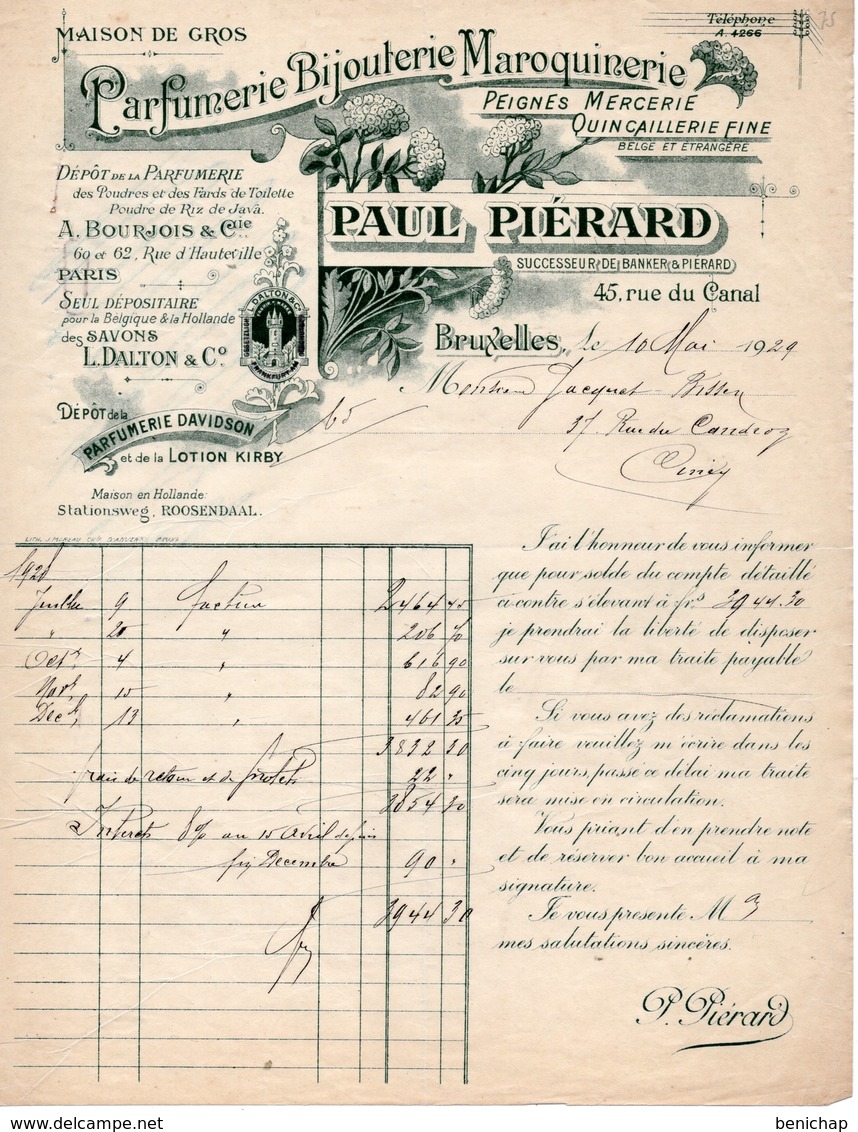 MAISON DE GROS
Téléphone
A. 4266
75
Parfumerie Bijouterie Maroquinerie
PEIGNES MERCERIE
QUINCAILLERIE FINE
BELGE ET ÉTRANGÈRE
DÉPÔT DE LA PARFUMERIE
des Poudres et des Fards de Toilette
Poudre de Riz de Java.
A. BOURJOIS & Cie
60 et 62, Rue d'Hauteville
PARIS
SEUL DÉPOSITAIRE
pour la Belgique & la Hollande
des SAVONS
L. DALTON & Co.
L. DALTON & Co
FRANKFURT A/M
DÉPÔT de la
PARFUMERIE DAVIDSON
et de la LOTION KIRBY
Maison en Hollande:
Stationsweg, ROOSENDAAL.
PAUL PIÉRARD
SUCCESSEUR DE BANKER & PIÉRARD
45, rue du Canal
Bruxelles, le 10 Mai 1929
Monsieur Jacquet-
37 Rue du
Ciney
65
LITH. J. MOREAU CHée D'ANVERS BRUX.
1928
Juillet 9 facture 2464 45
" 20 " 206 70
Octr 4 " 616 90
Nov. 10 " 82 90
Dec. 13 " 461 35
3832 30
frais de retour et de protets 22 "
3854 30
Interets 8% au 10 Avril depuis
fin Decembre 90 "
3944 30
J'ai l'honneur de vous informer
que pour solde du compte détaillé
ci-contre s'élevant à frs. 3944.30
je prendrai la liberté de disposer
sur vous par ma traite payable
le
Si vous avez des réclamations
à faire veuillez m'écrire dans les
cinq jours, passé ce délai ma traite
sera mise en circulation.
Vous priant d'en prendre note
et de réserver bon accueil à ma
signature.
Je vous présente M
mes salutations sincères.
P. Piérard
www.delcampe.net
benichap